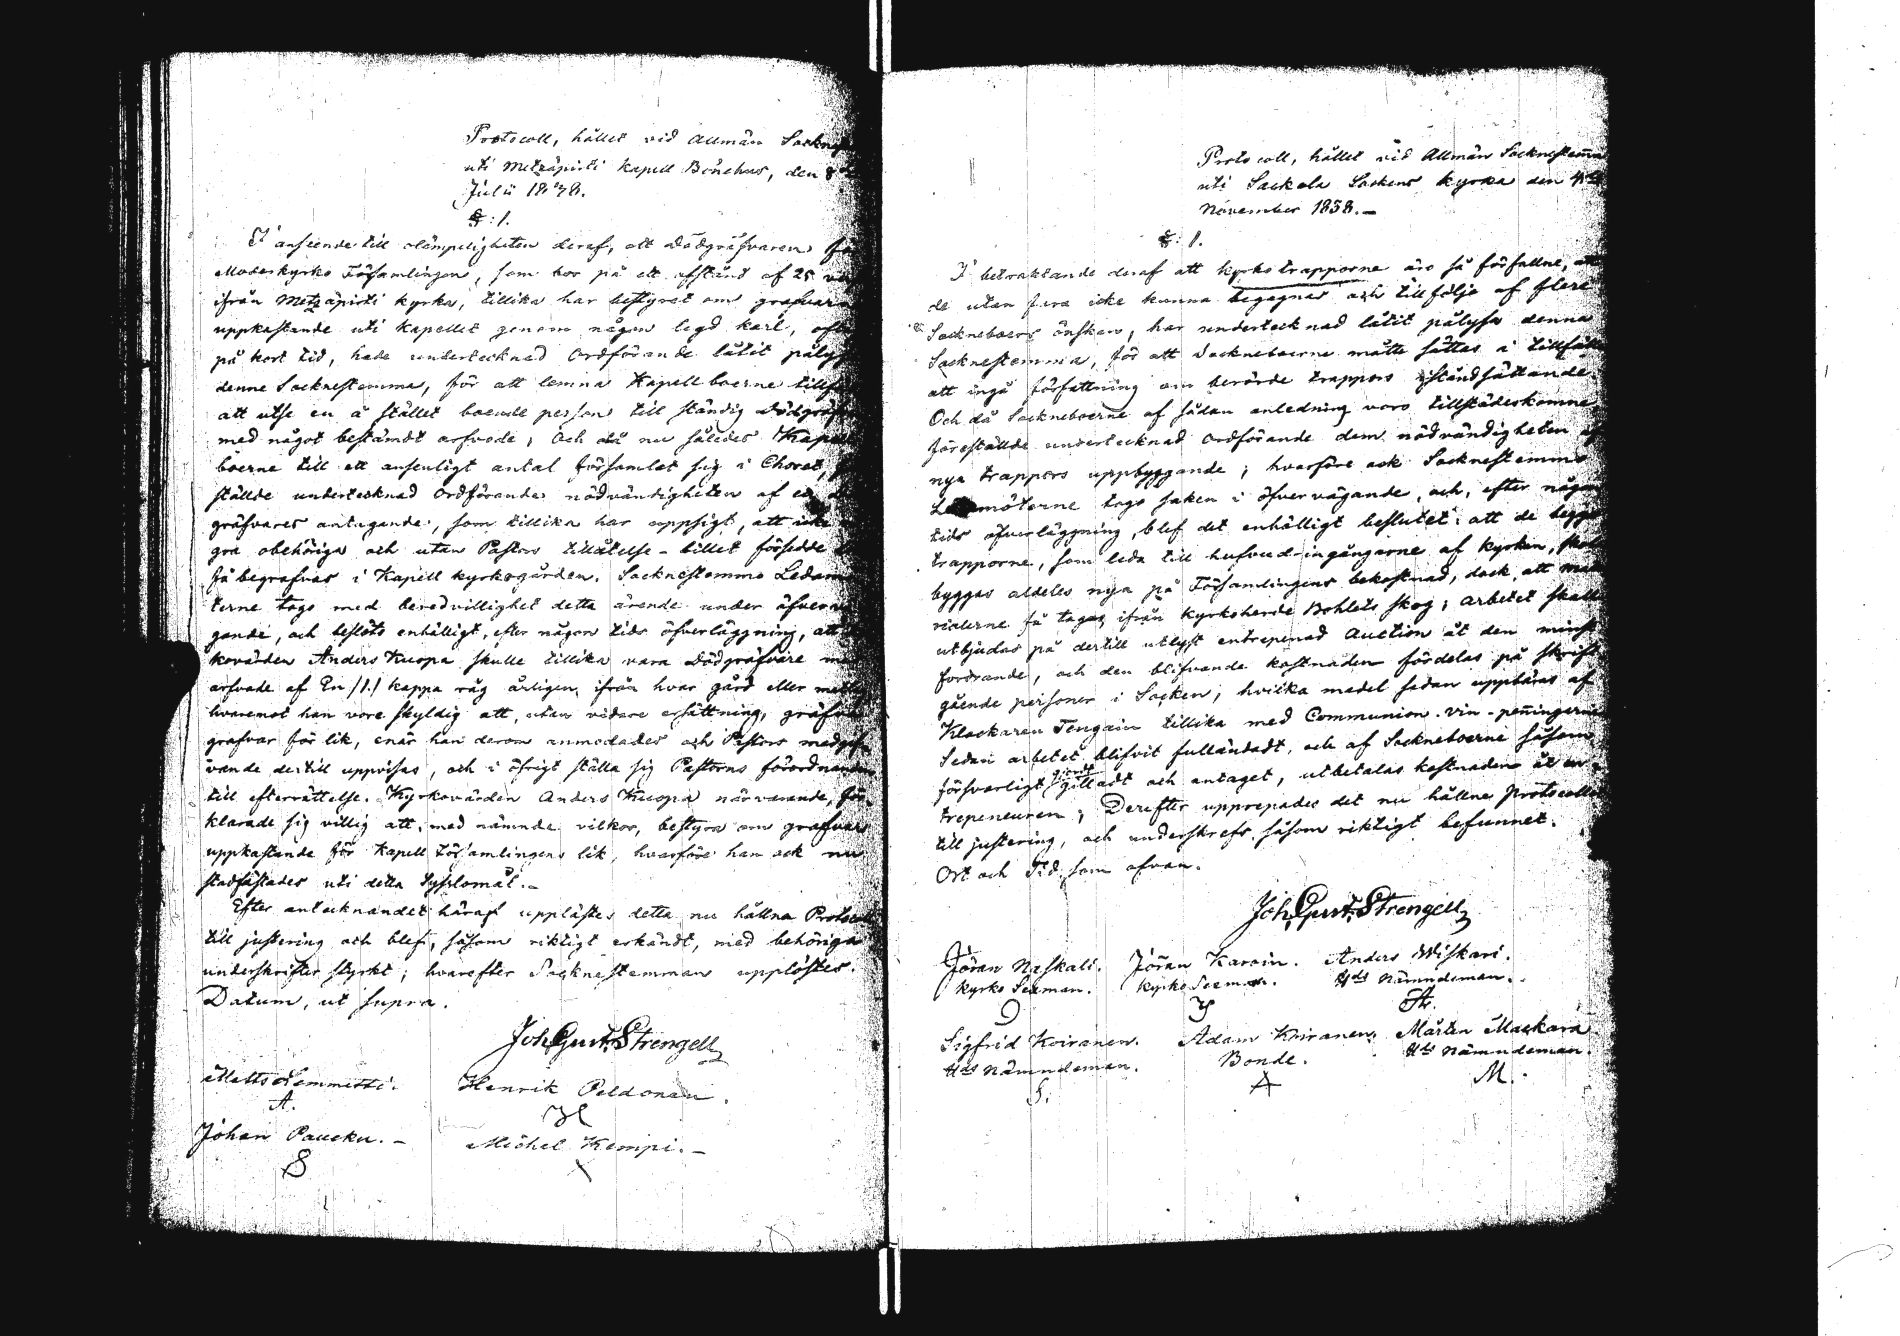 Protocoll, hållet vid Allmän Sockne
uti Metzäpirti Kapell Bönehus, den 8
Julii 1838.
§: 1.
I anseende till olämpeligheten deraf, att Dödgräfvaren för
Moderkyrko Församlingen, som bor på ett afstånd af 25
ifrån Metzäpirti kyrka, tillika har bestyret om grafvars
uppkastande uti Kapellet genom någon legd karl, ofta
på kort tid, hade undertecknad Ordförande låtit pålysa
denne Socknestemma, för att lemna Kapellboerne tillfälle
att utse en å stället boende person till ständig Dödgräfvare
med något bestämdt arfvode; Och då nu således Kapell
boerne till ett ansenligt antal församlat sig i Choret,
ställde undertecknad Ordförande nödvändigheten af en
gräfvares antagande, som tillika har uppsigt, att icke
gra obehöriga och utan Pastors tillåtelse-billet försedde
få begrafvas i Kapell kyrkogården. Socknestemmo Ledam
terne togo med beredvillighet detta ärende under öfver
gande, och beslöts enhälligt, efter någon tids öfverläggning, att
kovärden Anders Kuopa skulle tillika vara Dödgräfvare
arfvode af En /1./ kappa råg årligen ifrån hvar gård eller
hvaremot han vore skyldig att, utan vidare ersättning, gräfva
grafvar för lik, enär han derom anmodades och Pastors medgif
vande dertill uppvisas, och i öfrigt ställa sig Pastorns förordnanden
till efterrättelse. Kyrkovärden Anders Kuopa närvarande, för-
klarade sig villig att, med nämnde vilkor, bestyra om grafvars
uppkastande för Kapell Församlingens lik, hvarföre han ock nu
stadfästades uti detta Syslomål.
Efter antecknandet häraf upplästes detta nu hållna Protocoll
till justering och blef, såsom riktigt erkändt, med behöriga
underskrifter styrkt; hvarefter Socknestemman upplöstes.
Datum, ut supra.
Joh. Gust. Strengell
Matts Lemmitti. Henrik Peldonen.
A. H
Johan Paucku. Michel Kempi.
S
Protocoll, hållet vid Allmän Socknestemma
uti Sackola Sockens kyrka den 4de
November 1838.
§: 1.
I betraktande deraf att kyrkotrapporne äro så förfallne, att
de utan fara icke kunna begagnas och till följe af flere
Sockneboers önskan, har undertecknad låtit pålysa denna
Socknestemma, för att Sockneboerne måtte sättas i tillfälle
att ingå författning om berörde trappors iståndsättande.
Och då Sockneboerne af sådan anledning voro tillstädeskomne,
föreställde undertecknad Ordförande dem nödvändigheten af
nya trappors uppbyggande; hvarföre ock Socknestemmo
Ledamöterne togo saken i öfvervägande, och, efter någon
tids öfverläggning, blef det enhälligt beslutet: att de begge
trapporne, som leda till hufvud-ingångarne af kyrkan, skola
byggas aldeles nya på Församlingens bekostnad, dock, att mate
rialerne få tagas ifrån kyrkoherde Bohlets skog; arbetet skall
utbjudas på dertill utlyst entrepenad Auction åt den minst
fordrande, och den blifvande kostnaden fördelas på skrift-
gående personer i Socken; hvilka medel sedan uppbäras af
Klockaren Tengain tillika med Communion-vin-penningarne
Sedan arbetet blifvit fulländadt, och af Sockneboerne såsom
försvarligt gjordt gilladt och antaget, utbetalas kostnaden åt en-
trepeneuren; Derefter upprepades det nu hållne Protocollet
till justering, och underskrefs såsom riktigt befunnet.
Ort och Tid, som ofvan.
Joh. Gust. Strengell
Jöran Naskali. Jöran Karoin. Anders Wiskari.
kyrko Sexman. kyrko Sexman. Hds Nämndeman.
Sigfrid Koiranen. Adam Koiranen. Mårten Maskara.
Hds Nämndeman. Bonde. Hds Nämndeman.
S. A M.